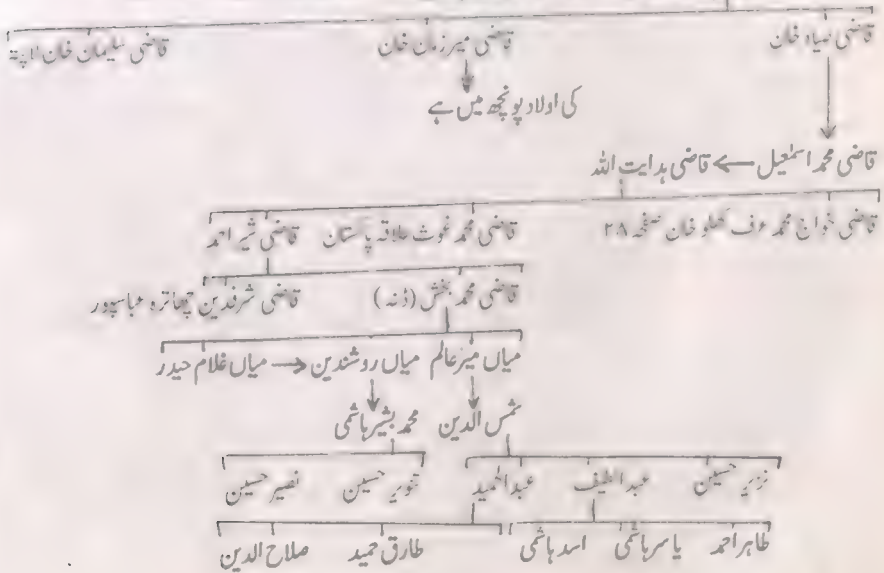 قاضی سیاہ خان قاضی میر زمان خان قاضی سلیمان خان لاپتہ
کی اولاد پونچھ میں ہے
قاضی محمد اسمٰعیل قاضی ہدایت اللہ
قاضی خواج محمد عرف کھلو خان صفحہ ۲۸ قاضی محمد غوث علاقہ پاکستان قاضی شیر احمد
قاضی محمد بخش (ڈنہ) قاضی شرفدین چھاترہ عباسپور
میاں میر عالم میاں روشندین میاں غلام حیدر
شمس الدین محمد بشیر ہاشمی
نزیر حسین عبدالطیف عبدالحمید تنویر حسین نصیر حسین
طاہر احمد یاسر ہاشمی اسد ہاشمی طارق حمید صلاح الدین